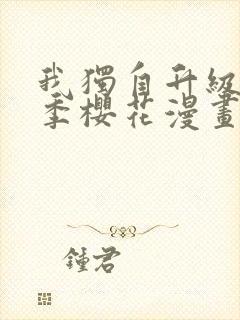 我獨自升級
季櫻花漫畫
鍾君